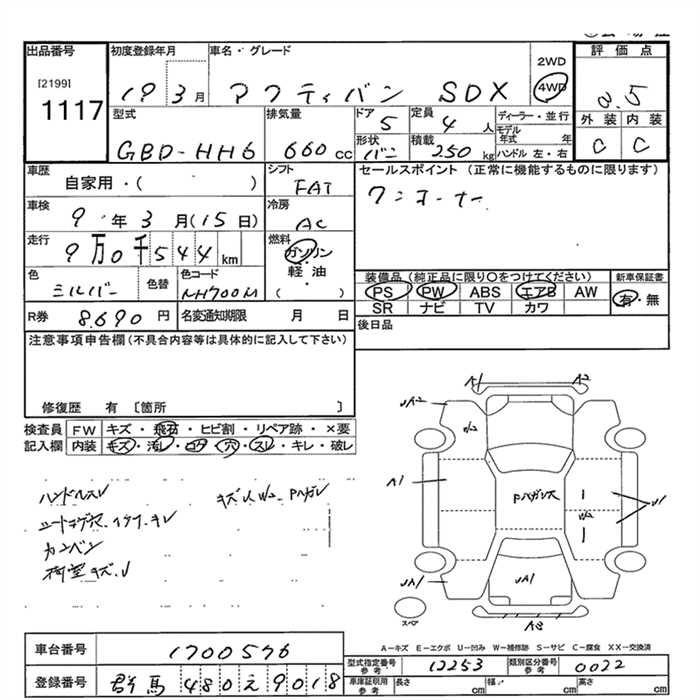 出品番号 初度登録年月 車名・グレード 2WD 評価点
[2199] 19 3月 アクティバン SDX 4WD
1117 型式 排気量 ドア 5 定員 4人 ディーラー・並行 外装 内装
GBD-HH6 660cc 形状 バン 積載 250kg モデル年式 年 C C
ハンドル 左・右
車歴 自家用・( ) シフト FAT セールスポイント(正常に機能するものに限ります)
ワンオーナー
車検 9年3月(15日) 冷房 AC
走行 9万0千544km 燃料 ガソリン・軽油・( )
装備品(純正品に限り○をつけてください) 新車保証書
色 シルバー 色替 色コード NH700M PS PW ABS エアB AW 有・無
SR ナビ TV カワ
R券 8.690円 名変通知期限 月 日 後日品
注意事項申告欄(不具合内容等は具体的に記入して下さい)
修復歴 有〔箇所 〕
検査員 FW キズ・飛石・ヒビ割・リペア跡・×要
記入欄 内装 キズ・汚レ・コゲ・穴・スレ・キレ・破レ
A1 A2
UA2
W2
ハンドルスレ
A1 Pハガシス U1
W2
カンバン
荷室キズ、U
UA1 UA1
スペア A3
A-キズ E-エクボ U-凹み W-補修跡 S-サビ C-腐食 XX-交換済
車台番号 1700576 型式指定番号 参考 12253 類別区分番号 参考 0022
登録番号 群馬 480 む 9018 車庫証明用 参考 長さ cm 幅 cm 高さ cm